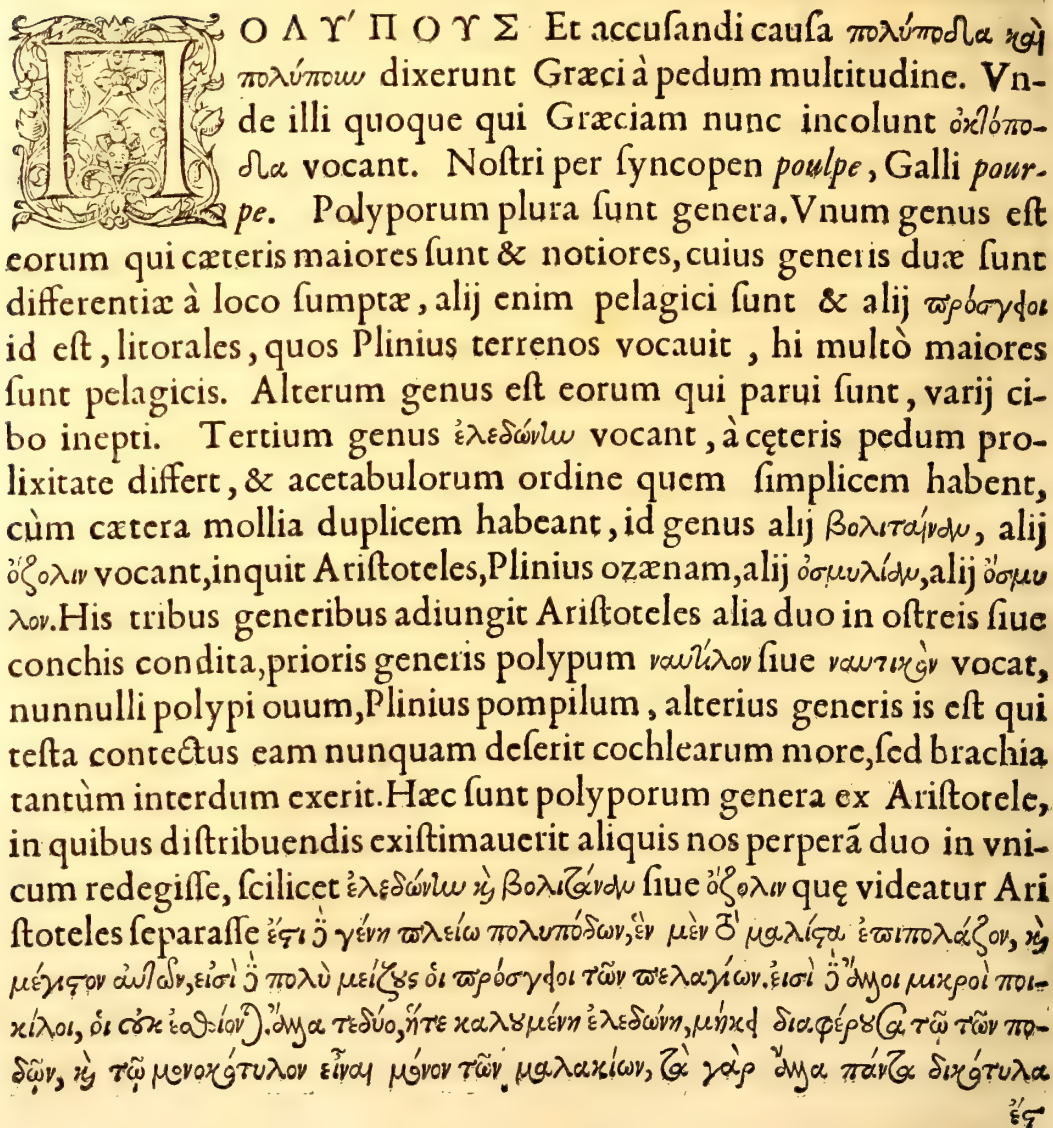 ΠΟΛΥ΄ΠΟΥΣ Et accuſandi cauſa πολύποδα καὶ
πολύπουν dixerunt Græci à pedum multitudine. Vn-
de illi quoque qui Græciam nunc incolunt ὀκτόπο-
δα vocant. Noſtri per ſyncopen poulpe, Galli pour-
pe. Polyporum plura ſunt genera. Vnum genus eſt
eorum qui cæteris maiores ſunt & notiores, cuius generis duæ ſunt
differentiæ à loco ſumptæ, alij enim pelagici ſunt & alij πρόσγειοι
id eſt, litorales, quos Plinius terrenos vocauit, hi multò maiores
ſunt pelagicis. Alterum genus eſt eorum qui parui ſunt, varij ci-
bo inepti. Tertium genus ἐλεδώνην vocant, à cęteris pedum pro-
lixitate differt, & acetabulorum ordine quem ſimplicem habent,
cùm cætera mollia duplicem habeant, id genus alij βολιταίναν, alij
ὄζολιν vocant, inquit Ariſtoteles, Plinius ozænam, alij ὀσμυλίαν, alij ὄσμυ
λον. His tribus generibus adiungit Ariſtoteles alia duo in oſtreis ſiue
conchis condita, prioris generis polypum ναυτίλον ſiue ναυτικὸν vocat,
nunnulli polypi ouum, Plinius pompilum, alterius generis is eſt qui
teſta contectus eam nunquam deſerit cochlearum more, ſed brachia
tantùm interdum exerit. Hæc ſunt polyporum genera ex Ariſtotele,
in quibus diſtribuendis exiſtimauerit aliquis nos perperã duo in vni-
cum redegiſſe, ſcilicet ἐλεδώνην καὶ βολιτάναν ſiue ὄζολιν quę videatur Ari
ſtoteles ſeparaſſe ἔστι δὲ γένη πλείω πολυπόδων, ἓν μὲν τὸ μαλίστα ἐπιπολάζον, καὶ
μέγιστον αὐτῶν, εἰσὶ δὲ πολὺ μείζους ὁι πρόσγειοι τῶν πελαγίων. εἰσὶ δὲ ἄλλοι μικροὶ ποι-
κίλοι, ὁι οὐκ ἐσθίονται. ἄλλα τε δύο, ἥ τε καλουμένη ἐλεδώνη, μήκει διαφέρουσα τῷ τῶν πο-
δῶν, καὶ τῷ μονοκότυλον εἶναι μόνον τῶν μαλακίων, τὰ γὰρ ἄλλα πάντα δικότυλα
ἐστ